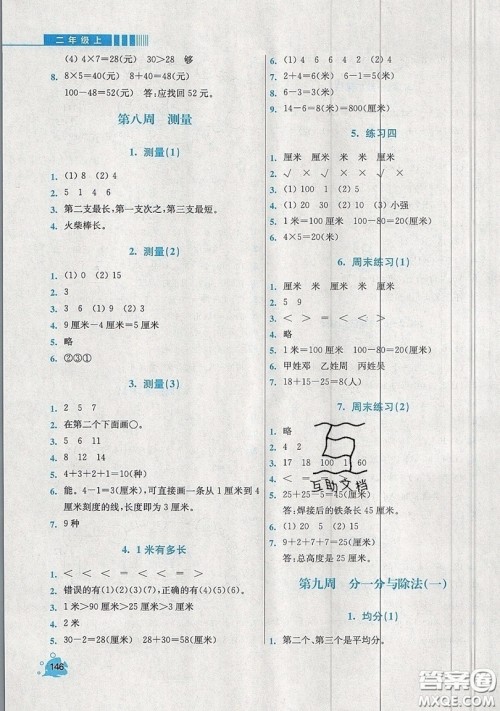 二年级上
(4) 4×7=28(元) 30>28 够
8. 8×5=40(元) 8+40=48(元)
100-48=52(元) 答:应找回52元。
第八周 测量
1. 测量(1)
1. (1) 8 (2) 4
2. 5 1 4 6
3. 第二支最长,第一支次之,第三支最短。
4. 火柴棒长。
2. 测量(2)
1. (1) 0 (2) 15
2. 3
3. 3 6 9
4. 9厘米-4厘米=5厘米
5. 略
6. ②③①
3. 测量(3)
1. 2 5 7
2. 在第二个下面画○。
3. 5 6 11
4. 8 12 14
5. 4+3+2+1=10(种)
6. 能。4-1=3(厘米),可直接画一条从1厘米到4
厘米刻度的线,长度即为3厘米。
7. 9种
4. 1米有多长
1. < < < = < <
2. 错误的有(1)(2)(7),正确的有(4)(5)(6)。
3. 1米>90厘米>25厘米>21厘米>2厘米
4. 2
5. 30-2=28(厘米) 28+30=58(厘米)
146
6. (1) 4 (2) 3 (3) 2 (4) 1
7. 2+4=6(厘米) 6-2=4(厘米)
8. 6-3=3(厘米)
9. 8+8=16(厘米) 16-1=15(厘米)
5. 练习四
1. 厘米 厘米 米 米 米 厘米
2. √ × √ × × √
3. (1) 100 (2) 32
4. (1) 3 (2) 10 (3) 12 (4) 小强
5. 1米=100厘米 100-80=20(厘米)
6. 4×5=20(厘米)
6. 周末练习(1)
1. 厘米 米 厘米 厘米 米 厘米
2. 5 9
3. < > < = = <
4. 略
5. 1米=100厘米 100-80=20(厘米)
6. 甲姓邓 乙姓周 丙姓吴
7. 18+15-25=8(人)
7. 周末练习(2)
1. 略
2. 4 2
3. 17 18 100 1 60
4. <
5. 25+25-5=45(厘米)
答:焊接后的铁条长45厘米。
6. (1) 20 (2) 15 (2) 4
7. 9+2+7+7=25(厘米)
答:总高度是25厘米。
互助文档
第九周 分一分与除法(一)
1. 均分(1)
1. 第二个、第三个是平均分。
答案圈
MXQE.COM